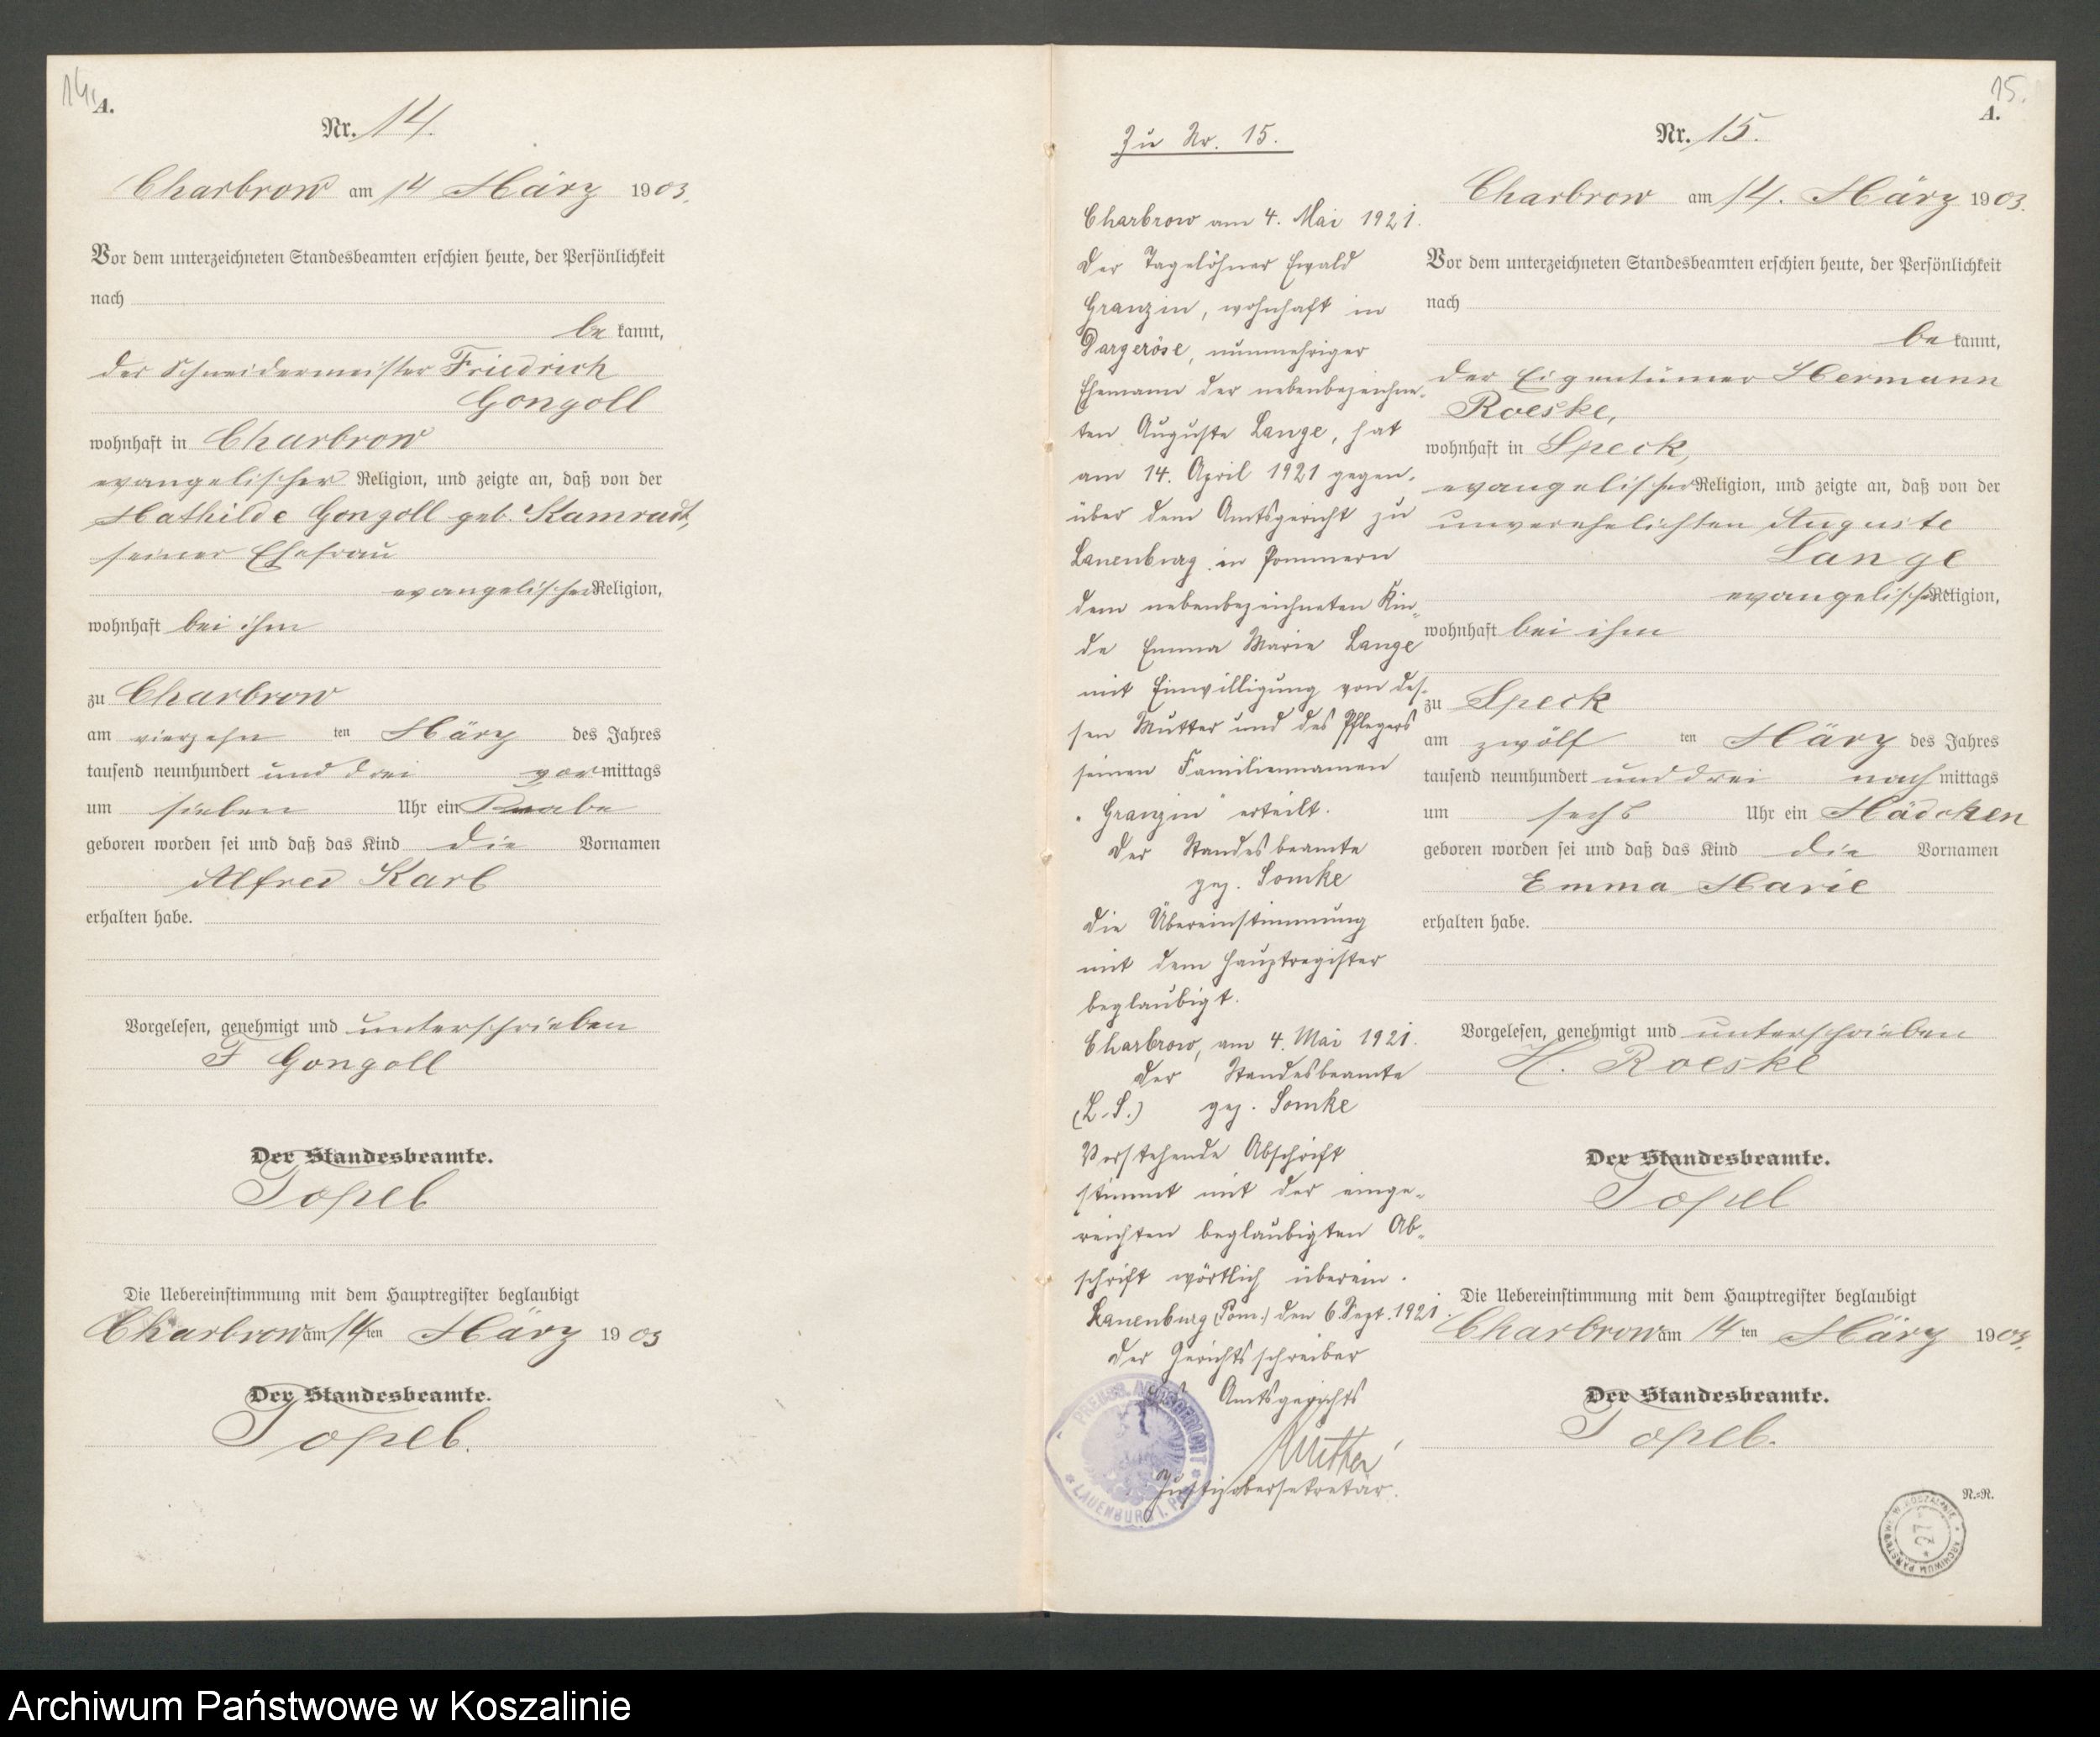 14.
A.
Nr. 14.
Charbrow am 14 März 1903.
Vor dem unterzeichneten Standesbeamten erschien heute, der Persönlichkeit
nach
be kannt,
der Schneidermeister Friedrich
Gongoll
wohnhaft in Charbrow
evangelischer Religion, und zeigte an, daß von der
Mathilde Gongoll geb. Kamradt,
seiner Ehefrau
evangelischer Religion,
wohnhaft bei ihm
zu Charbrow
am vierzehn ten März des Jahres
tausend neunhundert und drei vormittags
um sieben Uhr ein Knabe
geboren worden sei und daß das Kind die Vornamen
Alfred Karl
erhalten habe.
Vorgelesen, genehmigt und unterschrieben
F Gongoll
Der Standesbeamte.
Topel
Die Uebereinstimmung mit dem Hauptregister beglaubigt
Charbrow am 14ten März 1903
Der Standesbeamte.
Topel.
Zu Nr. 15.
Charbrow am 4. Mai 1921.
Der Tagelöhner Ewald
Granzin, wohnhaft in
Dargeröse, nunmehriger
Ehemann der nebenbezeichne-
ten Auguste Lange, hat
am 14. April 1921 gegen-
über dem Amtsgericht zu
Lauenburg in Pommern
dem nebenbezeichneten Kin-
de Emma Marie Lange
mit Einwilligung von des-
sen Mutter und des Pflegers
seinen Familiennamen
"Granzin" erteilt.
Der Standesbeamte
gez. Somke
Die Übereinstimmung
mit dem Hauptregister
beglaubigt.
Charbrow, am 4. Mai 1921.
Der Standesbeamte
(L.S.) gez. Somke
Vorstehende Abschrift
stimmt mit der einge-
reichten beglaubigten Ab-
schrift wörtlich überein.
Lauenburg (Pom.) den 6. Sept. 1921.
Der Gerichtsschreiber
des Amtsgerichts
Justizobersekretär.
PREUSS. AMTSGERICHT
* LAUENBURG i. P. *
15.
A.
Nr. 15.
Charbrow am 14. März 1903.
Vor dem unterzeichneten Standesbeamten erschien heute, der Persönlichkeit
nach
be kannt,
der Eigentümer Hermann
Roeske,
wohnhaft in Speck,
evangelischer Religion, und zeigte an, daß von der
unverehelichten Auguste
Lange
evangelischer Religion,
wohnhaft bei ihm
zu Speck
am zwölf ten März des Jahres
tausend neunhundert und drei nachmittags
um sechs Uhr ein Mädchen
geboren worden sei und daß das Kind die Vornamen
Emma Marie
erhalten habe.
Vorgelesen, genehmigt und unterschrieben
H. Roeske
Der Standesbeamte.
Topel
Die Uebereinstimmung mit dem Hauptregister beglaubigt
Charbrow am 14 ten März 1903.
Der Standesbeamte.
Topel.
N.=R.
ARCHIWUM PAŃSTWOWE W KOSZALINIE
27
Archiwum Państwowe w Koszalinie